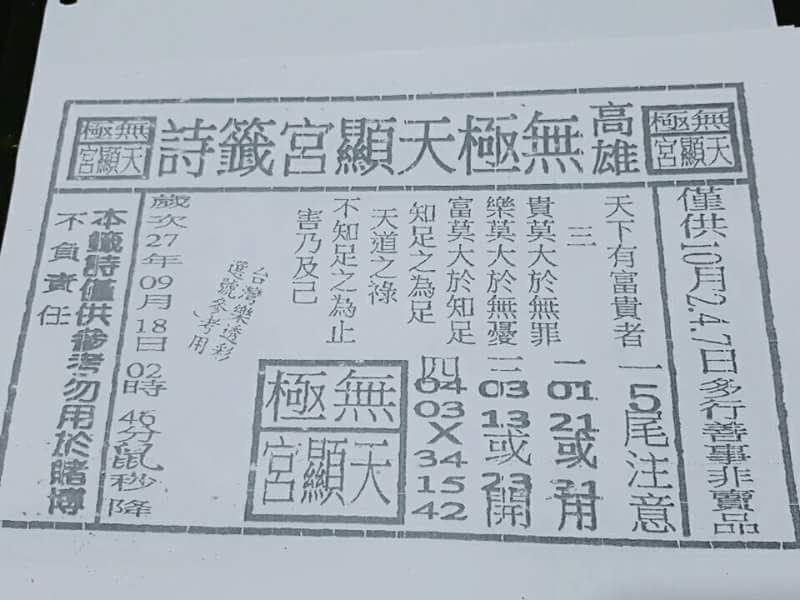 高雄無極天顯宮籤詩
無極
天顯宮
無極
天顯宮
僅供10月2.4.7日多行善事非賣品
天下有富貴者
三
貴莫大於無罪
樂莫大於無憂
富莫大於知足
知足之為足
天道之祿
不知足之為止
害乃及己
一5尾注意
二01 21或31用
三03 13或23開
四04 03X34 15 42
台灣樂透彩
選號參考用
無極
天顯宮
歲次27年09月18日02時46分鼠秒降
本籤詩僅供參考勿用於賭博
不負責任